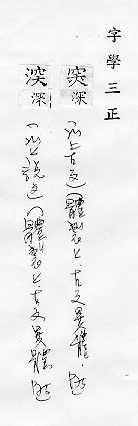 字學三正
深 (以上古文)(體製上·古文異體·
深 (以上說文)(體製上·古文異體